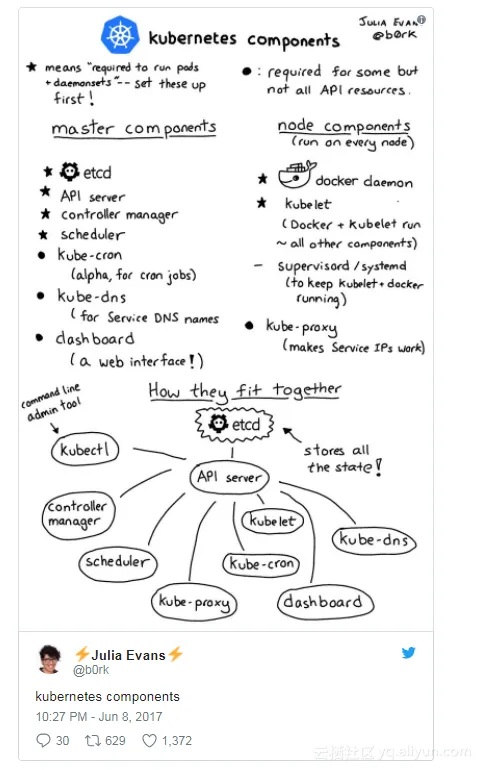 kubernetes components
JULIA EVANS
@b0rk
★ means "required to run pods
+ daemonsets" -- set these up
first!
● : required for some but
not all API resources.
master components
★ etcd
★ API server
★ controller manager
★ scheduler
● kube-cron
(alpha, for cron jobs)
● kube-dns
(for Service DNS names
● dashboard
(a web interface!)
node components
(run on every node)
★ docker daemon
★ kubelet
(Docker + Kubelet run
~ all other components)
– supervisord/systemd
(to keep kubelet + docker
running)
● kube-proxy
(makes Service IPs work)
How they fit together
command line
admin tool
etcd
stores all
the state!
kubectl
API server
controller
manager
kubelet
kube-dns
scheduler
kube-cron
kube-proxy
dashboard
⚡Julia Evans⚡
@b0rk
kubernetes components
10:27 PM - Jun 8, 2017
30 629 1,372
云栖社区 yq.aliyun.com